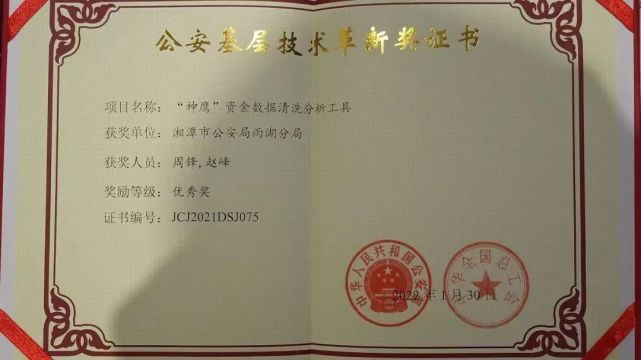 公安基层技术革新奖证书
项目名称：“神鹰”资金数据清洗分析工具
获奖单位：湘潭市公安局雨湖分局
获奖人员：周锋,赵峰
奖励等级：优秀奖
证书编号：JCJ2021DSJ075
中华人民共和国公安部
中华全国总工会
2022年1月30日